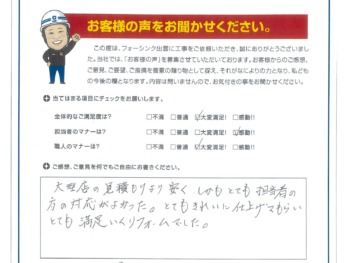 お客様の声をお聞かせください。
この度は、フォーシンク出雲に工事をご依頼いただき、誠にありがとうございました。
当社では、「お客様の声」を募集させていただいております。お客様からのご感想、
ご意見、ご要望、ご指摘を貴重の贈り物として捉え、それがなによりの力となり、私ども
の今後の糧となります。内容は問いませんので、お気付きの事をお聞かせください。
当てはまる項目にチェックをお願いします。
全体的なご満足度は? □不満 □普通 ☑大変満足! □感動!!
担当者のマナーは? □不満 □普通 □大変満足! ☑感動!!
職人のマナーは? □不満 □普通 ☑大変満足! □感動!!
ご感想、ご意見を何でもご自由にお書きください。
大型店の見積もりより安く しかもとても担当者の
方の対応がよかった。とてもきれいに仕上げてもらい
とても満足いくリフォームでした。